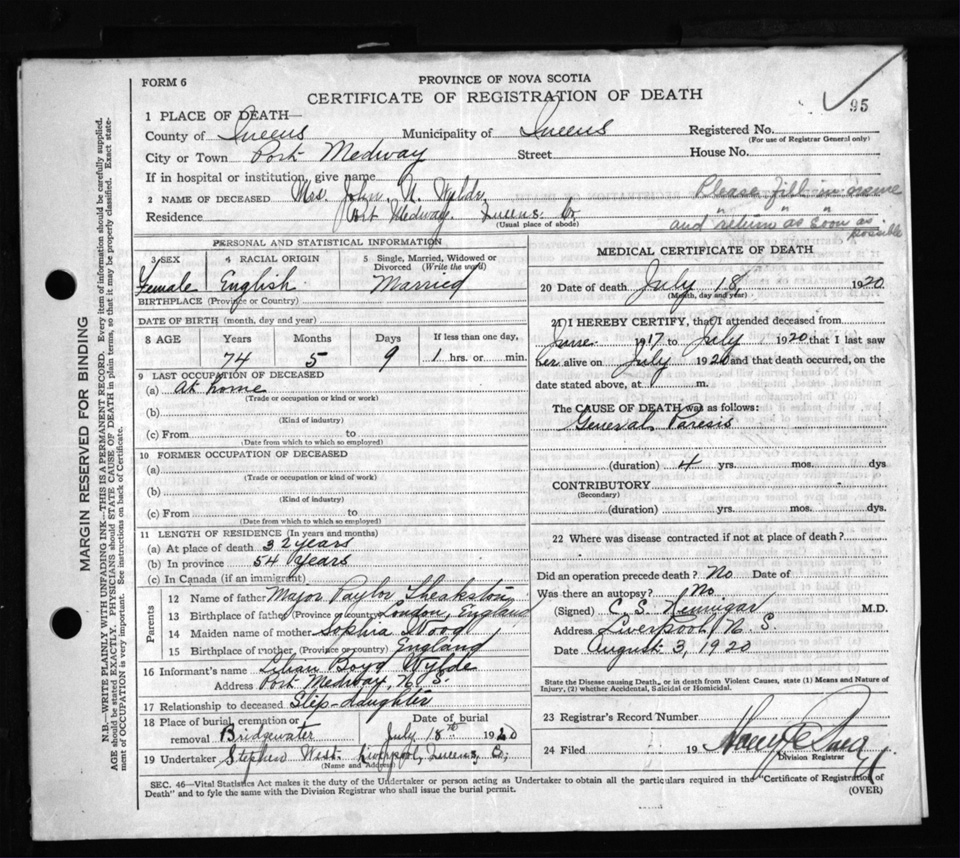 FORM 6
PROVINCE OF NOVA SCOTIA
CERTIFICATE OF REGISTRATION OF DEATH
95
1 PLACE OF DEATH—
County of Queens Municipality of Queens Registered No.
(For use of Registrar General only)
City or Town Port Medway Street House No.
If in hospital or institution, give name
2 NAME OF DECEASED Mrs. John N. Wylde
Please fill in name
and "return" as soon as
possible
Residence Port Medway. Queens. Co
(Usual place of abode)
PERSONAL AND STATISTICAL INFORMATION
3 SEX 4 RACIAL ORIGIN 5 Single, Married, Widowed or
Divorced (Write the word)
Female English Married
BIRTHPLACE (Province or Country)
DATE OF BIRTH (month, day and year)
8 AGE Years Months Days If less than one day,
74 5 9 1 hrs. or min.
9 LAST OCCUPATION OF DECEASED
(a) At home
(Trade or occupation or kind of work)
(b)
(Kind of industry)
(c) From to
(Date from which to which so employed)
10 FORMER OCCUPATION OF DECEASED
(a)
(Trade or occupation or kind of work)
(b)
(Kind of industry)
(c) From to
(Date from which to which so employed)
11 LENGTH OF RESIDENCE (In years and months)
(a) At place of death 32 years
(b) In province 54 years
(c) In Canada (if an immigrant)
Parents
12 Name of father Major Taylor Theakston
13 Birthplace of father (Province or country) London, England
14 Maiden name of mother Sophia Wood
15 Birthplace of mother (Province or country) England
16 Informant's name Lilian Boyd Wylde
Address Port Medway, N. S.
17 Relationship to deceased Step-daughter
18 Place of burial, cremation or Date of burial
removal Bridgewater July 18th 1920
19 Undertaker Stephen West. Liverpool, Queens, Co,
(Name and Address)
MEDICAL CERTIFICATE OF DEATH
20 Date of death July 18, 1920.
(Month, day and year)
21 I HEREBY CERTIFY, that I attended deceased from
June 1917 to July 1920 that I last saw
her alive on July 1920 and that death occurred, on the
date stated above, at m.
The CAUSE OF DEATH was as follows:
General Paresis
(duration) 4 yrs. mos. dys
CONTRIBUTORY
(Secondary)
(duration) yrs. mos. dys.
22 Where was disease contracted if not at place of death?
Did an operation precede death? No Date of
Was there an autopsy? No
(Signed) C. S. Hennigar M.D.
Address Liverpool, N. S.
Date August 3, 1920
State the Disease causing Death, or in death from Violent Causes, state (1) Means and Nature of
Injury, (2) whether Accidental, Suicidal or Homicidal.
23 Registrar's Record Number
24 Filed 19
Division Registrar
SEC. 46—Vital Statistics Act makes it the duty of the Undertaker or person acting as Undertaker to obtain all the particulars required in the "Certificate of Registration of
Death" and to fyle the same with the Division Registrar who shall issue the burial permit.
(OVER)
MARGIN RESERVED FOR BINDING
N.B.—WRITE PLAINLY WITH UNFADING INK—THIS IS A PERMANENT RECORD. Every item of information should be carefully supplied.
AGE should be stated EXACTLY. PHYSICIANS should STATE CAUSE OF DEATH in plain terms, so that it may be properly classified. Exact state-
ment of OCCUPATION is very important. See instructions on back of Certificate.